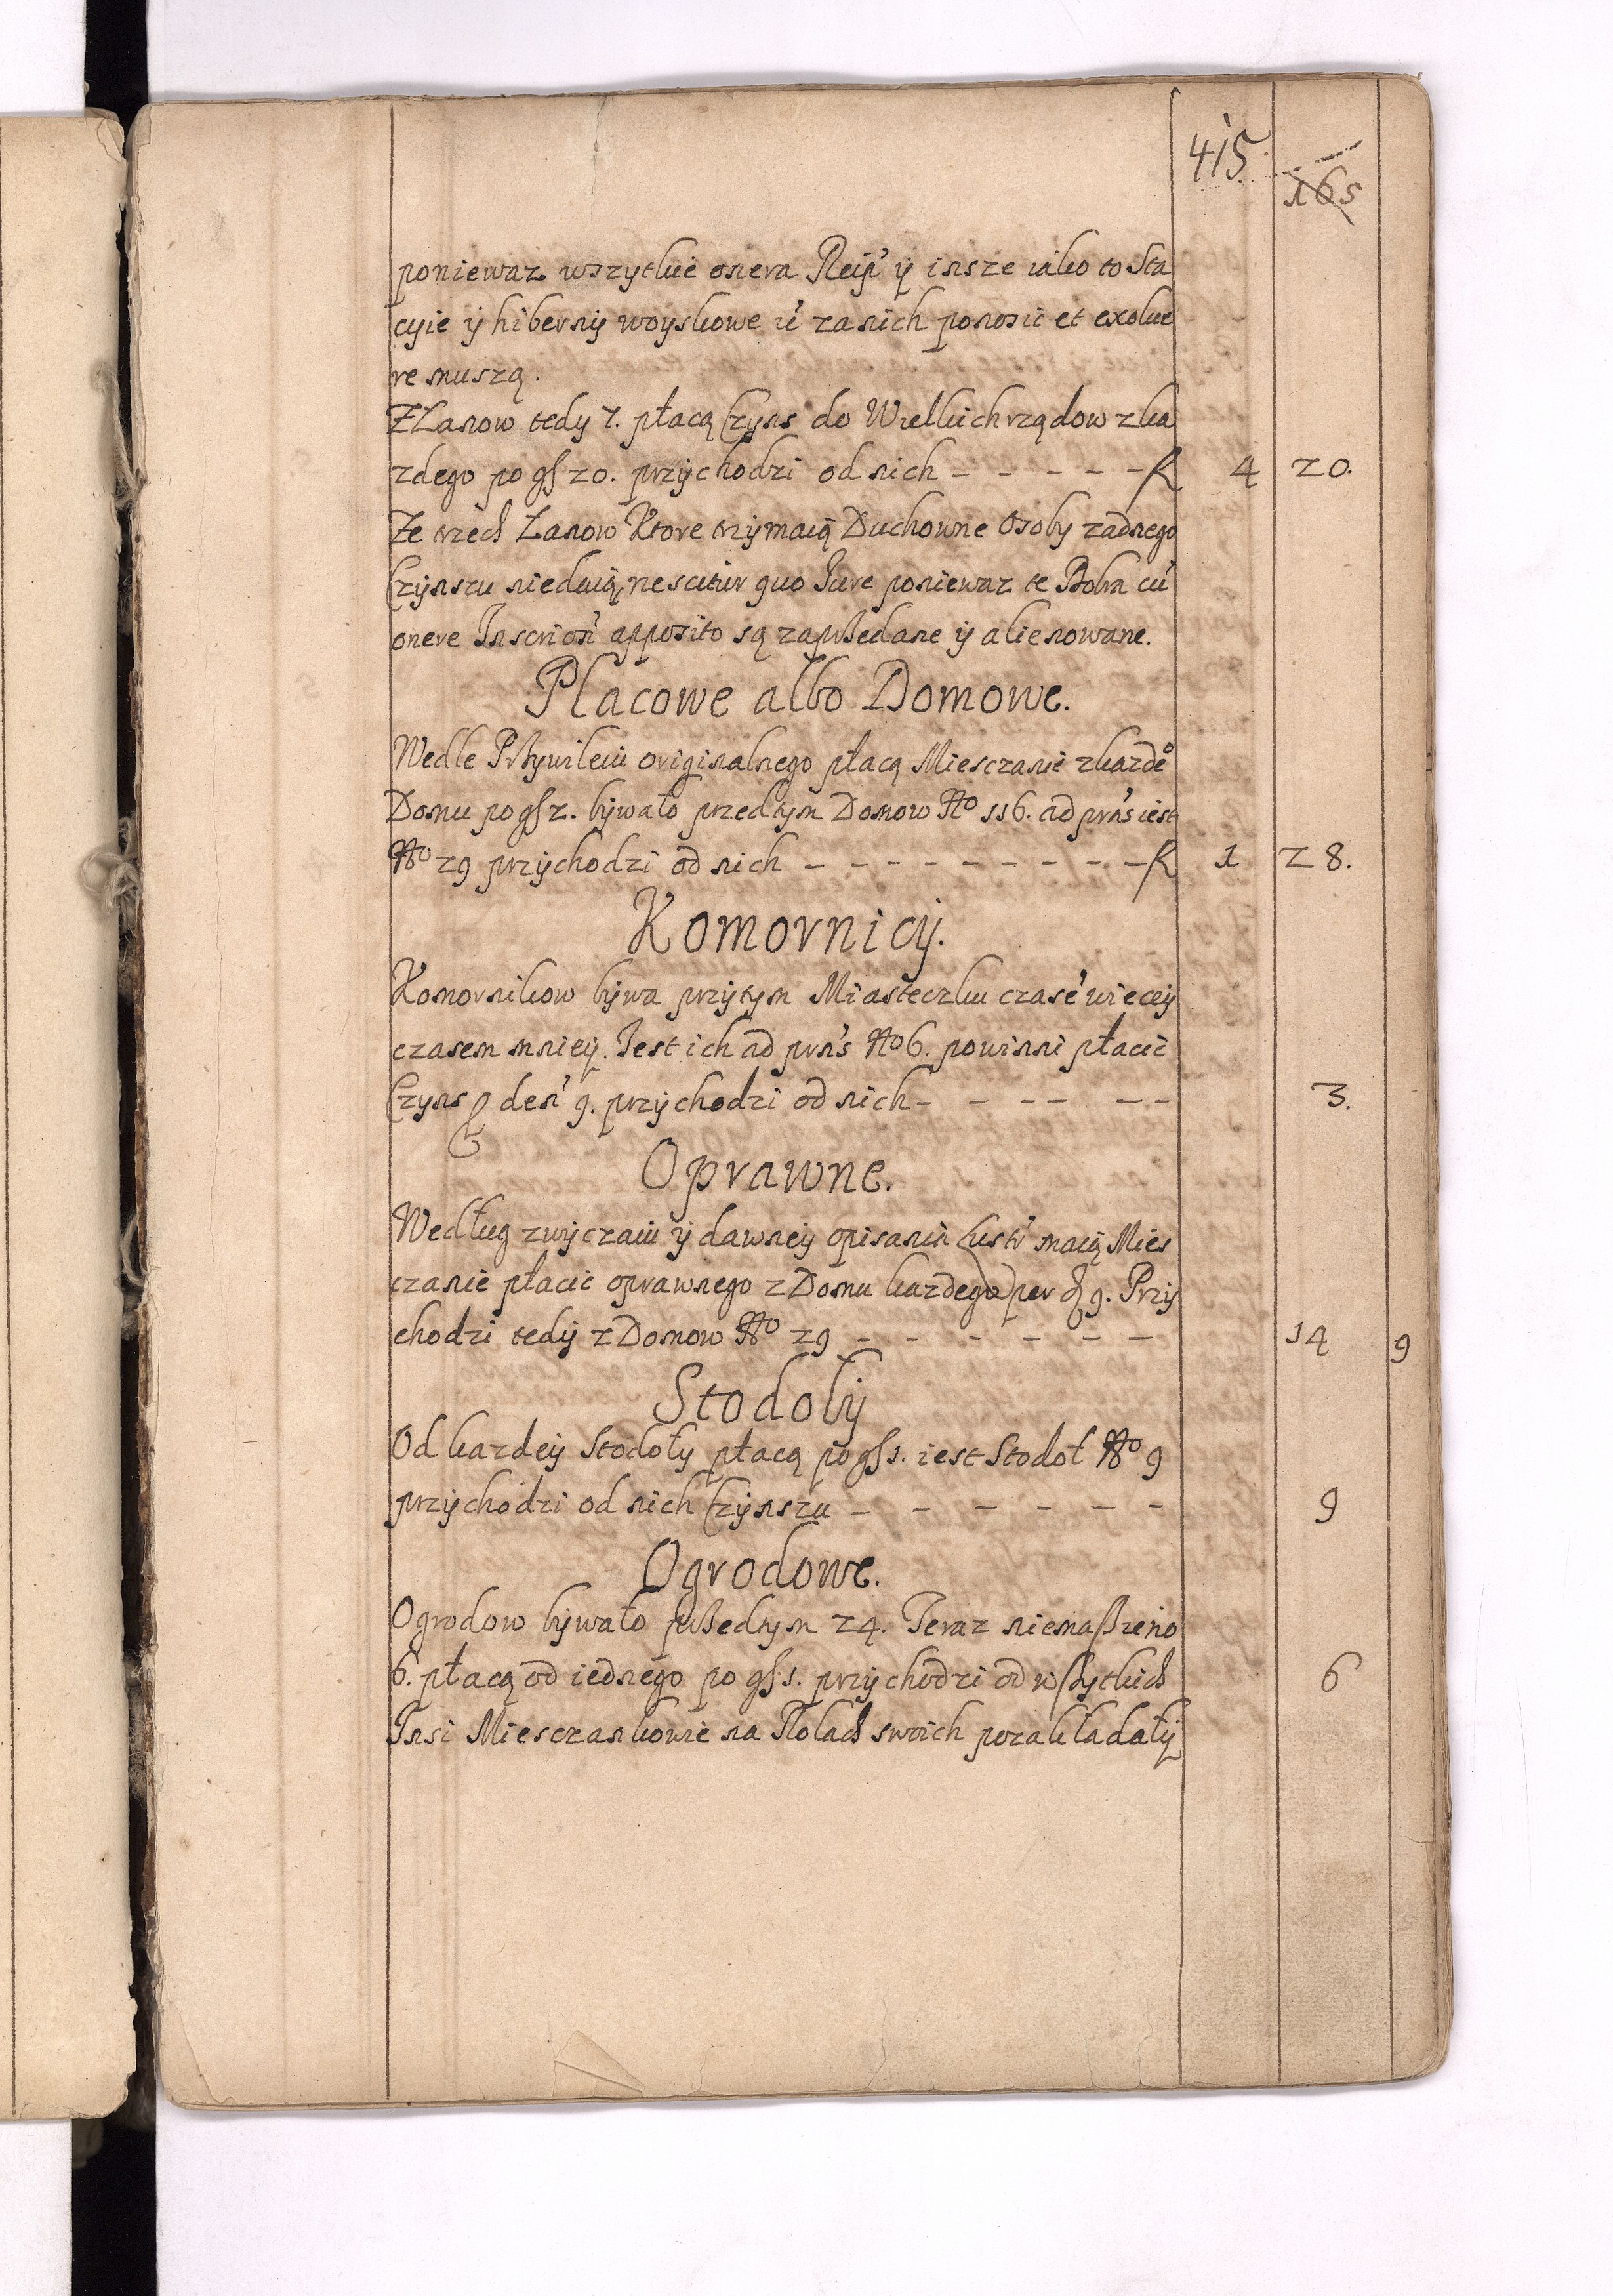 415.
165
poniewaz wszytkie onera Reip' ÿ insze iako to Sta
cyie ÿ hibernÿ woyskowe i' za nich ponosic et exolue
re muszą.
Z Lanow tedÿ 7. płacą Czyns do Wielkich rządow z ka
zdego po gs 20. przÿchodzi od nich - - - - - f 4 20.
Ze trzech Lanow Ktore trzÿmaią Duchowne Osobÿ zadnego
Czÿnszu niedaią, nescitur quo Jure poniewaz te Dobra cu'
onere Inscrion' apposito są zaprzedane ÿ alienowane.
Placowe albo Domowe.
Wedle Przÿwileiu originalnego płacą Miesczanie z kazde°
Domu po gs 2. bÿwało przedtÿm Domow No 116. ad prns iest
No 29 przÿchodzi od nich - - - - - - - - - f 1 28.
Komornicÿ.
Komornikow bÿwa przÿtym Miasteczku czase' wiecey
czasem mniey. Iest ich ad prn's No 6. powinni płacic
Czyns p den' 9. przÿchodzi od nich - - - - - - 3.
Oprawne.
Według zwÿczaiu ÿ dawneÿ opisania Lustr' maią Mies
czanie płacic oprawnego z Domu kazdego per d 9. Przÿ
chodzi tedÿ z Domow No 29 - - - - - - 14 9
Stodolÿ
Od kazdeÿ Stodołÿ płacą po gs 1. iest Stodoł No 9
przÿchodzi od nich Czÿnszu - - - - - - 9
Ogrodowe.
Ogrodow bÿwało przedtÿm 24. Teraz niemasz ieno
6. płacą od iednego po gs 1. przÿchodzi od wszÿtkich 6
Insi Miesczankowie na Rolach swoich pozakładalÿ